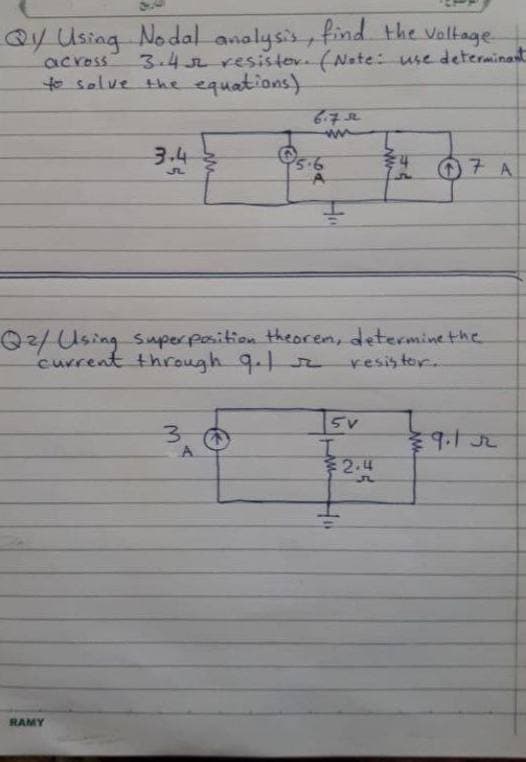 Q1/ Using Nodal analysis, find the voltage
across 3.4 Ω resistor. (Note: use determinant
to solve the equations)
6.7 Ω
3.4
Ω
5.6
A
4
Ω
7 A
Q2/ Using superposition theorem, determine the
current through 9.1 Ω resistor.
5V
3
A
9.1 Ω
2.4
Ω
RAMY